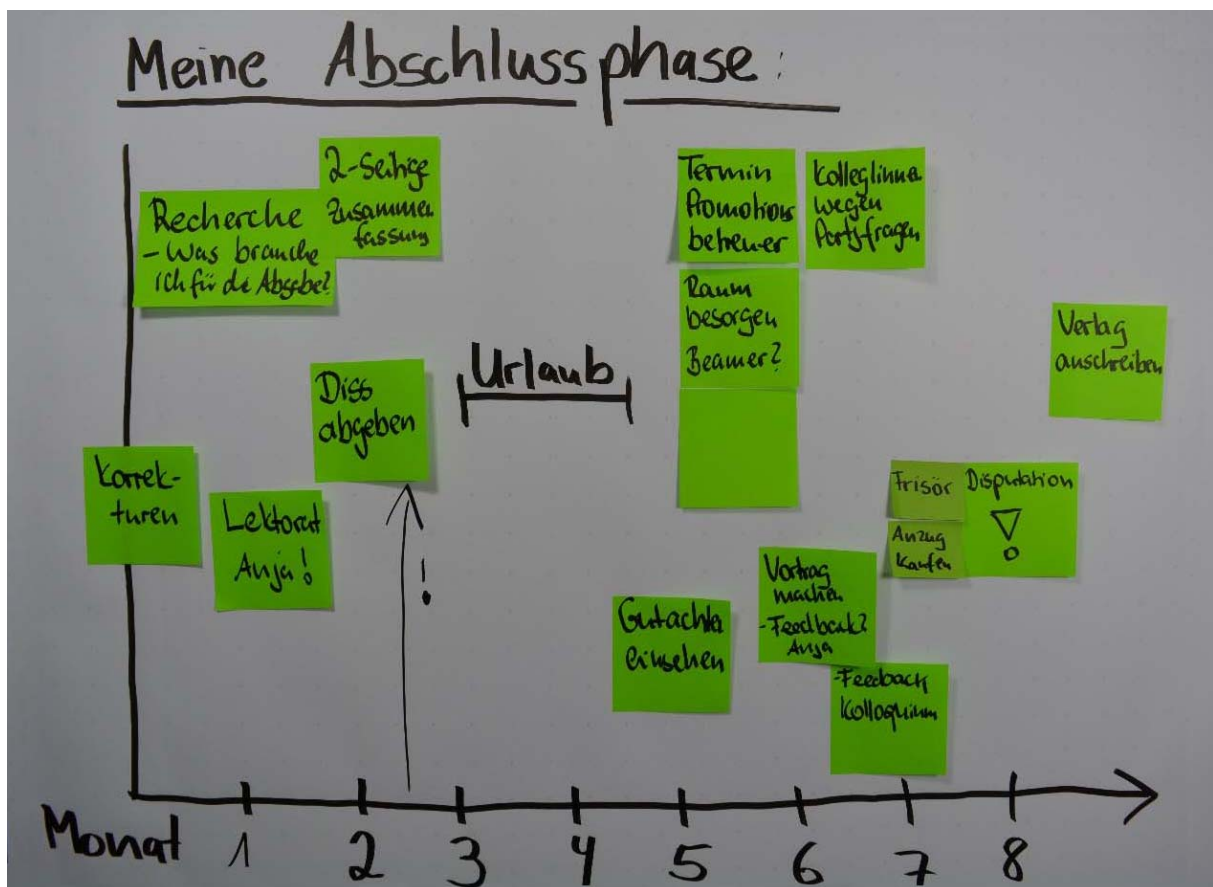 Meine Abschlussphase:
Recherche
- Was brauche
ich für die Abgabe?
2-Seitige
Zusammen
fassung
Termin
Promotions
betreuer
KollegInnen
wegen
Partyfragen
Raum
besorgen
Beamer?
Verlag
anschreiben
Urlaub
Diss
abgeben
Korrek-
turen
Lektorat
Anja!
!
Frisör
Anzug
kaufen
Disputation
!
Gutachten
einsehen
Vortrag
machen
- Feedback?
Anja
- Feedback
Kolloquium
Monat 1 2 3 4 5 6 7 8